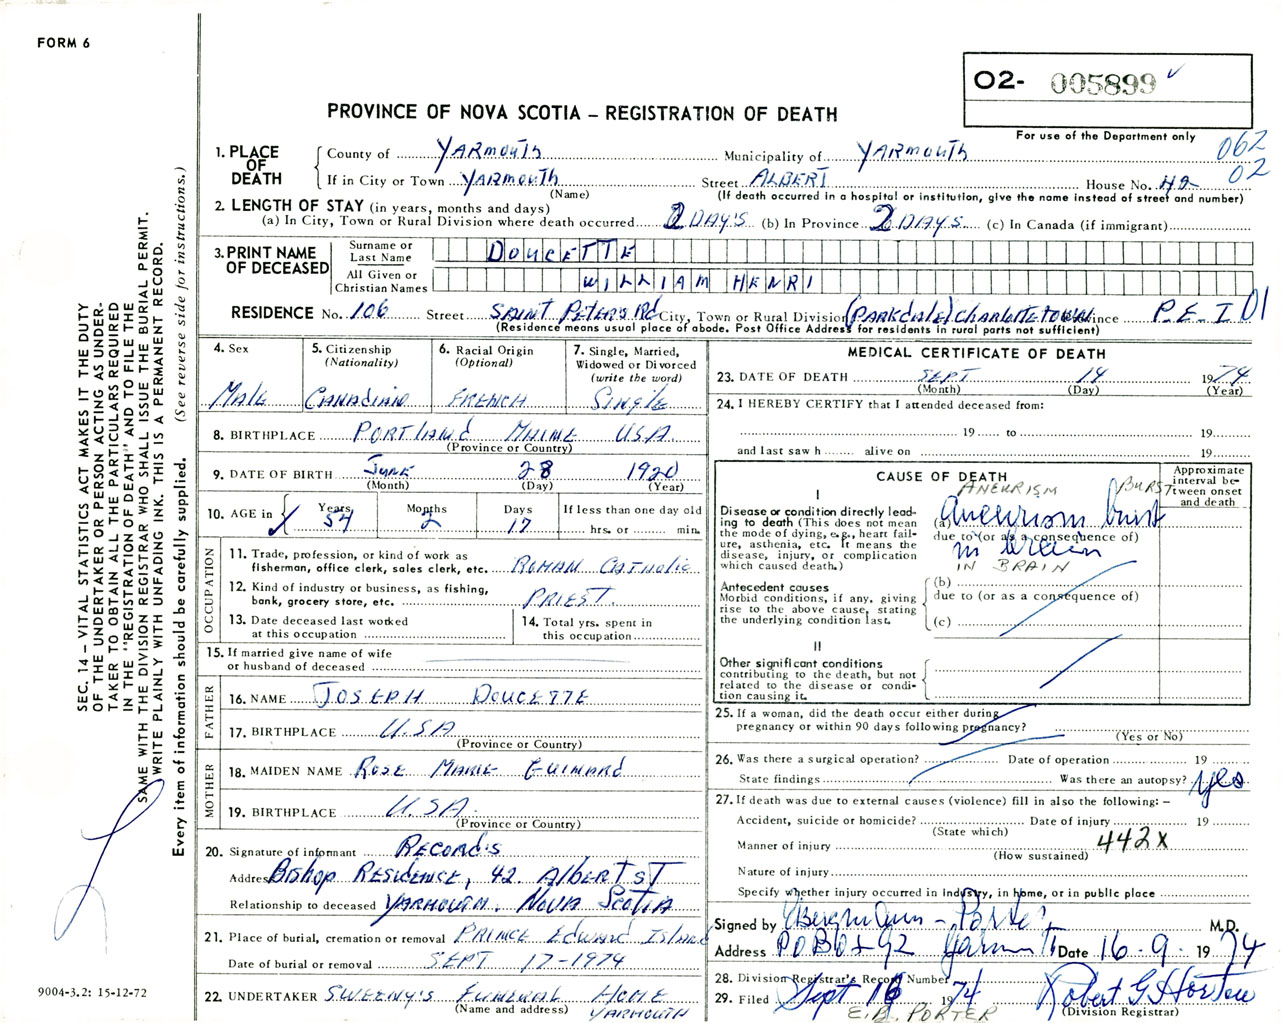 FORM 6
O2- 005899
PROVINCE OF NOVA SCOTIA – REGISTRATION OF DEATH
For use of the Department only
062
02
1. PLACE OF DEATH
County of YARMOUTH Municipality of YARMOUTH
If in City or Town YARMOUTH Street ALBERT House No. 42
(Name) (If death occurred in a hospital or institution, give the name instead of street and number)
2. LENGTH OF STAY (in years, months and days)
(a) In City, Town or Rural Division where death occurred 2 DAY'S (b) In Province 2 DAYS (c) In Canada (if immigrant)
3. PRINT NAME OF DECEASED
Surname or Last Name DOUCETTE
All Given or Christian Names WILLIAM HENRI
RESIDENCE No. 106 Street SAINT PETER'S Rd City, Town or Rural Division (PARKDALE) CHARLOTTETOWN Province P.E.I 01
(Residence means usual place of abode. Post Office Address for residents in rural parts not sufficient)
4. Sex
MALE
5. Citizenship
(Nationality)
CANADIAN
6. Racial Origin
(Optional)
FRENCH
7. Single, Married,
Widowed or Divorced
(write the word)
SINGLE
8. BIRTHPLACE PORTLAND MAINE USA
(Province or Country)
9. DATE OF BIRTH JUNE 28 1920
(Month) (Day) (Year)
10. AGE in
Years Months Days If less than one day old
54 2 17 hrs. or min.
OCCUPATION
11. Trade, profession, or kind of work as
fisherman, office clerk, sales clerk, etc. ROMAN CATHOLIC
12. Kind of industry or business, as fishing,
bank, grocery store, etc. PRIEST.
13. Date deceased last worked
at this occupation
14. Total yrs. spent in
this occupation
15. If married give name of wife
or husband of deceased
FATHER
16. NAME JOSEPH DOUCETTE
17. BIRTHPLACE U.S.A
(Province or Country)
MOTHER
18. MAIDEN NAME ROSE MARIE GUIMARD
19. BIRTHPLACE U.S.A.
(Province or Country)
20. Signature of informant RECORD'S
Address BISHOP RESIDENCE, 42. ALBERT ST
Relationship to deceased YARMOUTH. NOVA SCOTIA
21. Place of burial, cremation or removal PRINCE EDWARD ISLAND
Date of burial or removal SEPT 17-1974
22. UNDERTAKER SWEENY'S FUNERAL HOME
(Name and address) YARMOUTH
MEDICAL CERTIFICATE OF DEATH
23. DATE OF DEATH SEPT 14 1974
(Month) (Day) (Year)
24. I HEREBY CERTIFY that I attended deceased from:
19 to 19
and last saw h alive on 19
CAUSE OF DEATH
Approximate interval between onset and death
I
ANEURISM BURST
Disease or condition directly leading to death (This does not mean the mode of dying, e.g., heart failure, asthenia, etc. It means the disease, injury, or complication which caused death.)
(a) Aneurism burst
due to (or as a consequence of)
in brain
IN BRAIN
Antecedent causes
Morbid conditions, if any, giving rise to the above cause, stating the underlying condition last.
(b)
due to (or as a consequence of)
(c)
II
Other significant conditions
contributing to the death, but not
related to the disease or condition causing it.
25. If a woman, did the death occur either during
pregnancy or within 90 days following pregnancy?
(Yes or No)
26. Was there a surgical operation? Date of operation 19
State findings Was there an autopsy? yes
27. If death was due to external causes (violence) fill in also the following: –
Accident, suicide or homicide? Date of injury 19
(State which)
Manner of injury 442X
(How sustained)
Nature of injury
Specify whether injury occurred in industry, in home, or in public place
Signed by Bergmann-Porter M.D.
Address P O BOX 92 Yarmouth Date 16-9-1974
28. Division Registrar's Record Number
29. Filed Sept 16 1974 Robert G Horton
E.B. PORTER (Division Registrar)
SEC. 14 – VITAL STATISTICS ACT MAKES IT THE DUTY
OF THE UNDERTAKER OR PERSON ACTING AS UNDER-
TAKER TO OBTAIN ALL THE PARTICULARS REQUIRED
IN THE "REGISTRATION OF DEATH" AND TO FILE THE
SAME WITH THE DIVISION REGISTRAR WHO SHALL ISSUE THE BURIAL PERMIT.
WRITE PLAINLY WITH UNFADING INK. THIS IS A PERMANENT RECORD.
Every item of information should be carefully supplied. (See reverse side for instructions.)
9004-3.2: 15-12-72